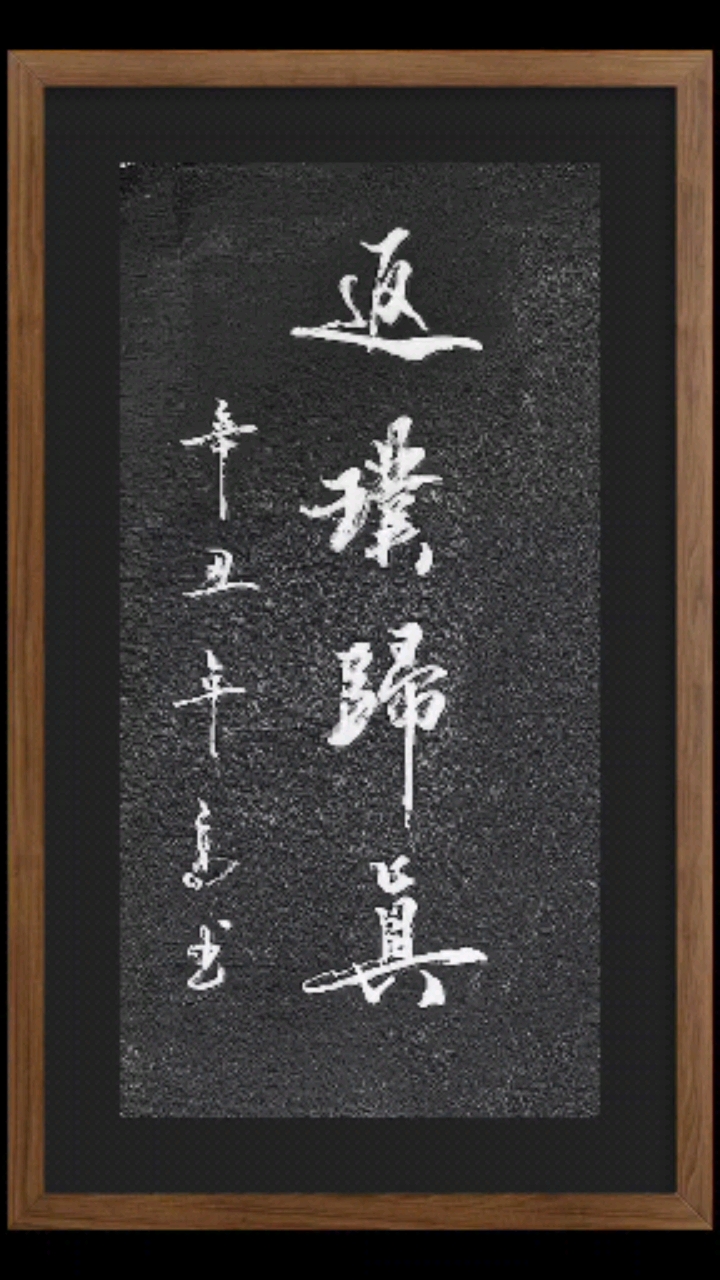 返璞歸真
辛丑年書